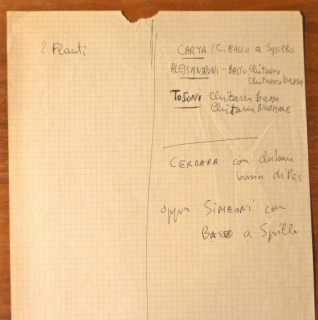 2 Flauti
CARTA / C. BASSO a Spillo
ALESSANDRONI - BASSO Chitarra
Chitarra BASSA
TOSONI Chitarra BASSA
Chitarra NORMALE
CERBARA con chitarra
bassa di Pes
oppure SIMEONI con
BASSO a Spillo